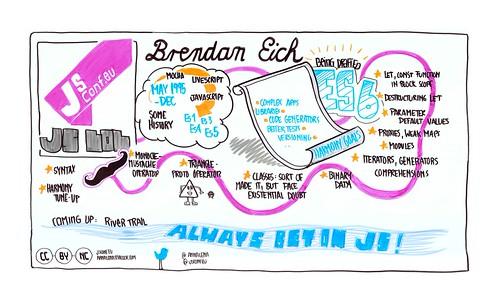 Brendan Eich
JS
Conf.eu
MOCHA
LIVESCRIPT
JAVASCRIPT
MAY 1995
-DEC
SOME
HISTORY
E1 E3
E4 E5
COMPLEX APPS
LIBRARIES
CODE GENERATORS
BETTER TESTS
VERSIONING
HARMONY GOALS
BEING DRAFTED
ES6
LET, CONST FUNCTION
IN BLOCK SCOPE
DESTRUCTURING LET
PARAMETER
DEFAULT VALUES
PROXIES, WEAK MAPS
MODULES
ITERATORS, GENERATORS
COMPREHENSIONS
BINARY
DATA
CLASSES: SORT OF
MADE IT, BUT FACE
EXISTENTIAL DOUBT
TRIANGLE-
PROTO OPERATOR
MONOCLE-
MUSTACHE
OPERATOR
SYNTAX
HARMONY
TUNE-UP
COMING UP: RIVER TRAIL
ALWAYS BET ON JS!
CC BY NC